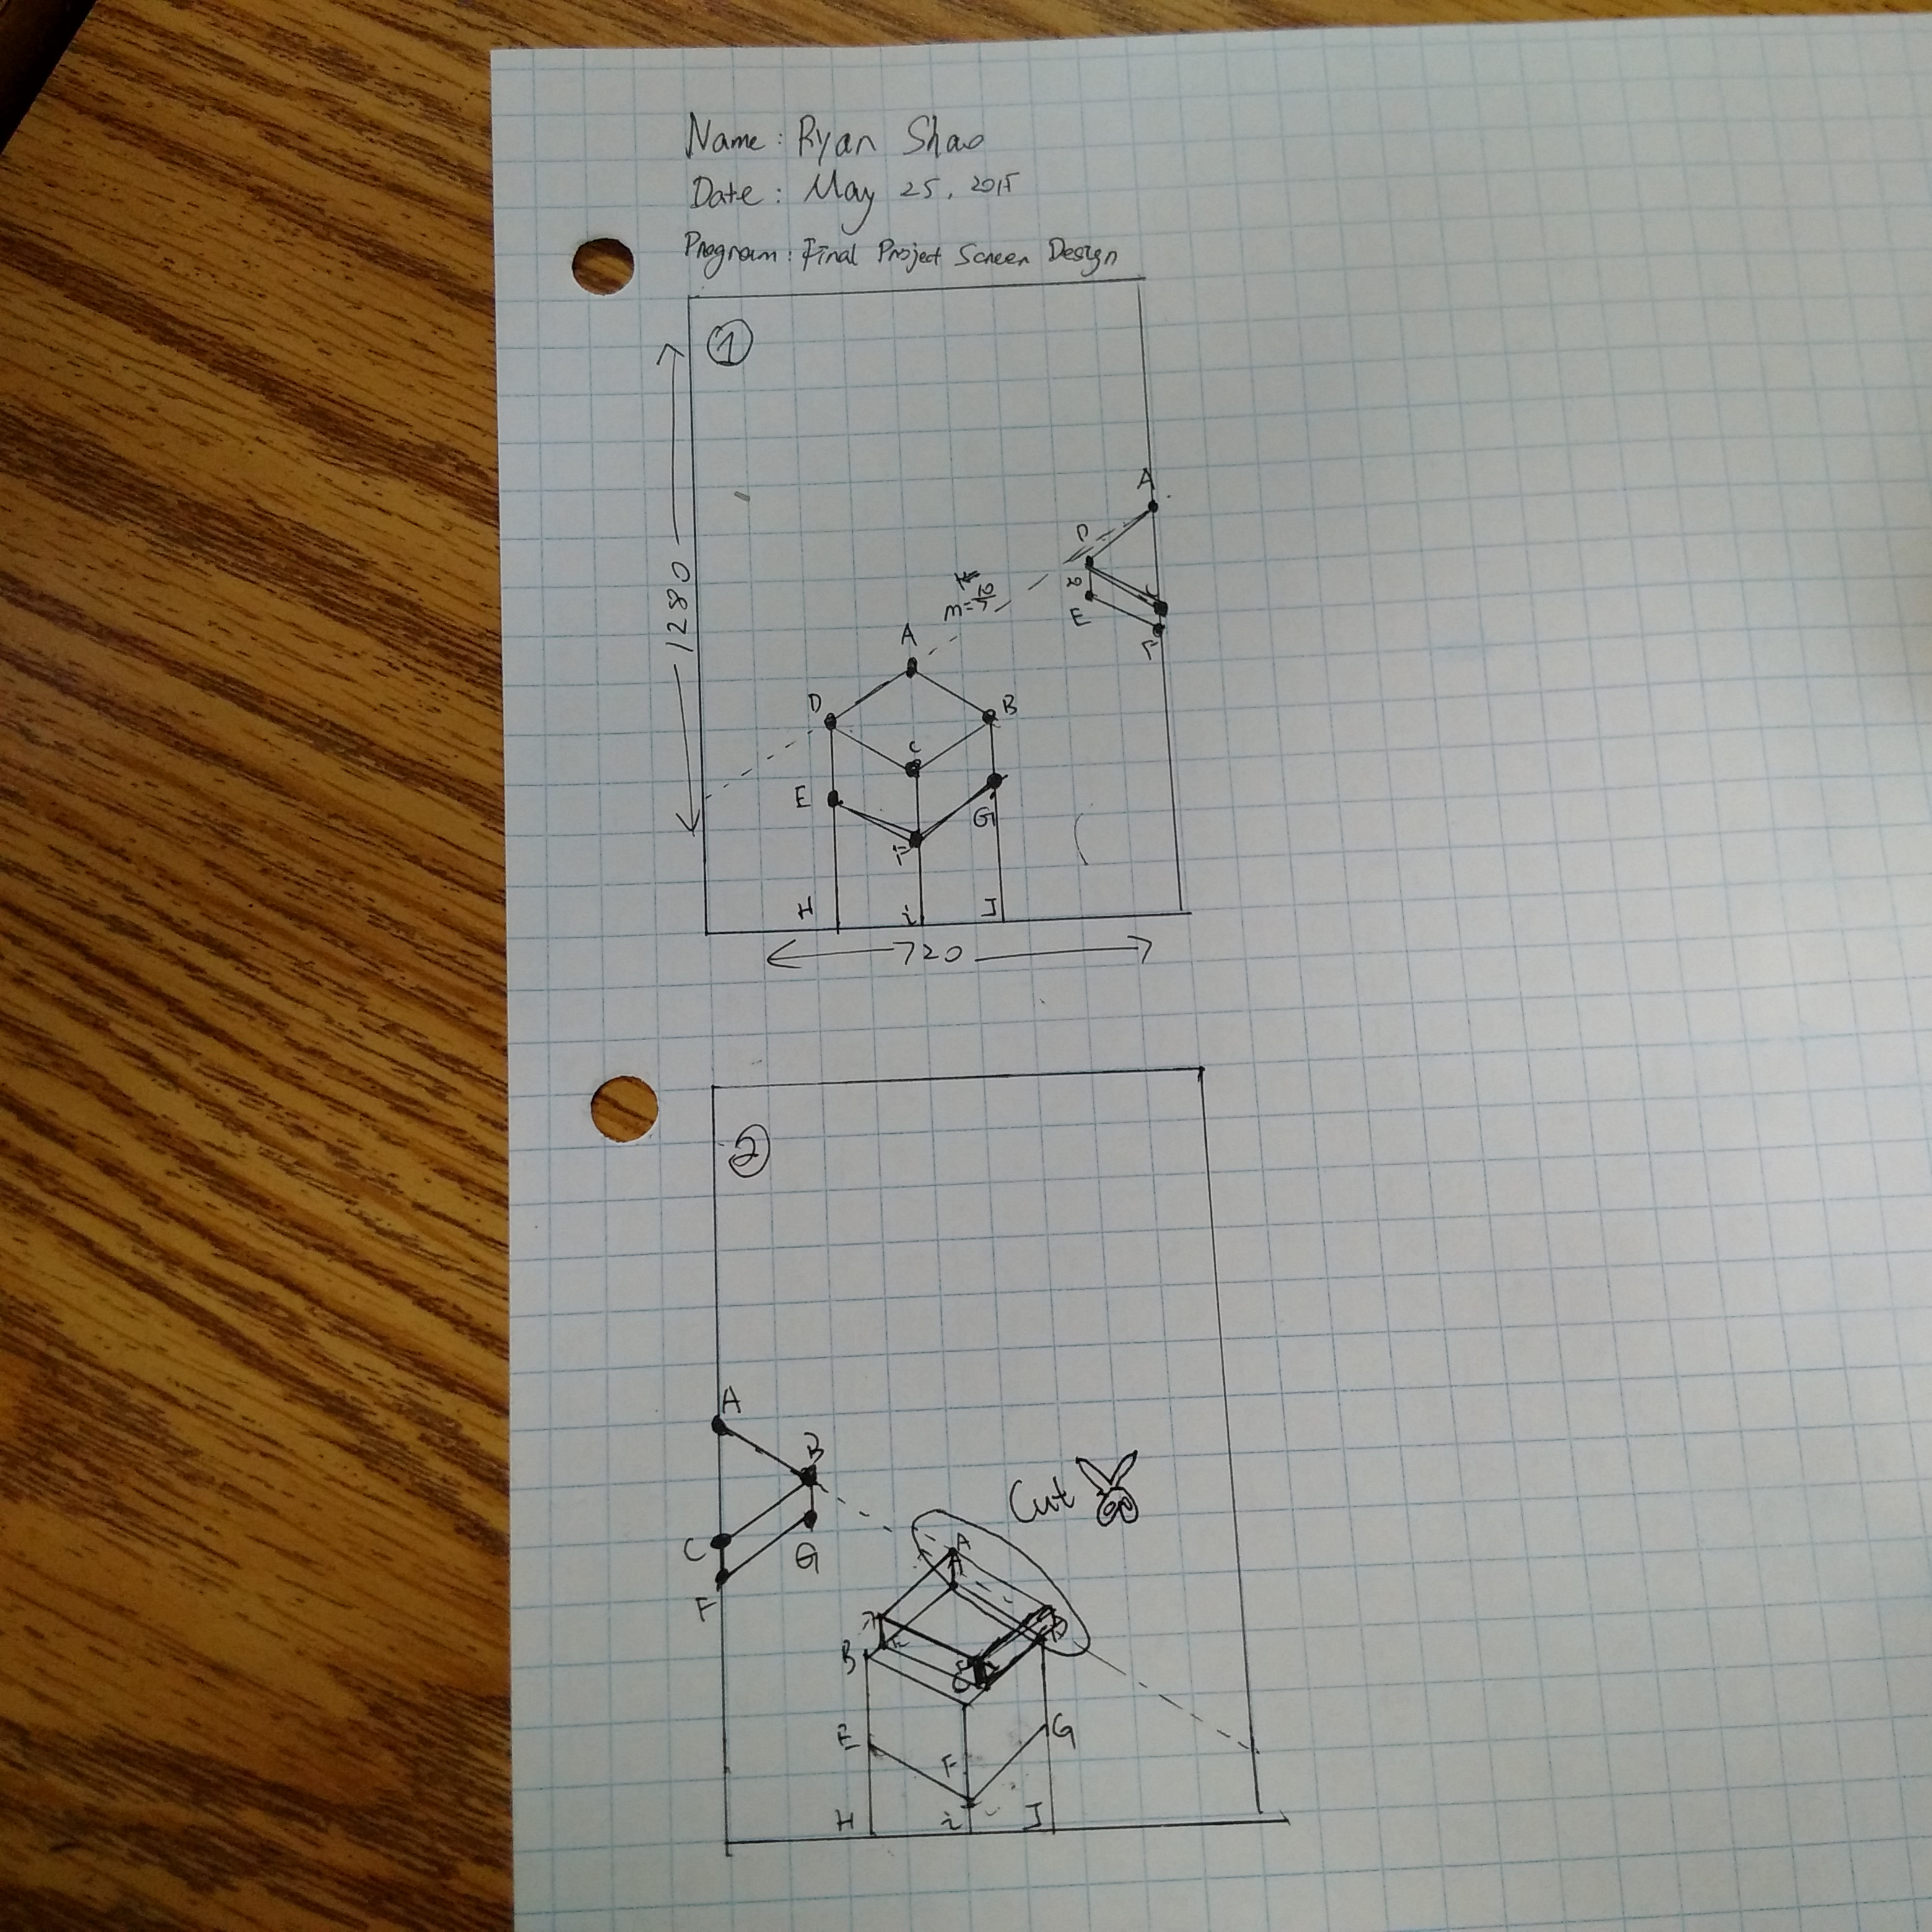 Name: Ryan Shao
Date: May 25, 2015
Program: Final Project Screen Design
1
1280
A
D
E
F
m=
A
D
B
C
E
G
F
H
i
J
720
2
A
B
C
G
F
Cut
A
B
E
F
G
H
i
J